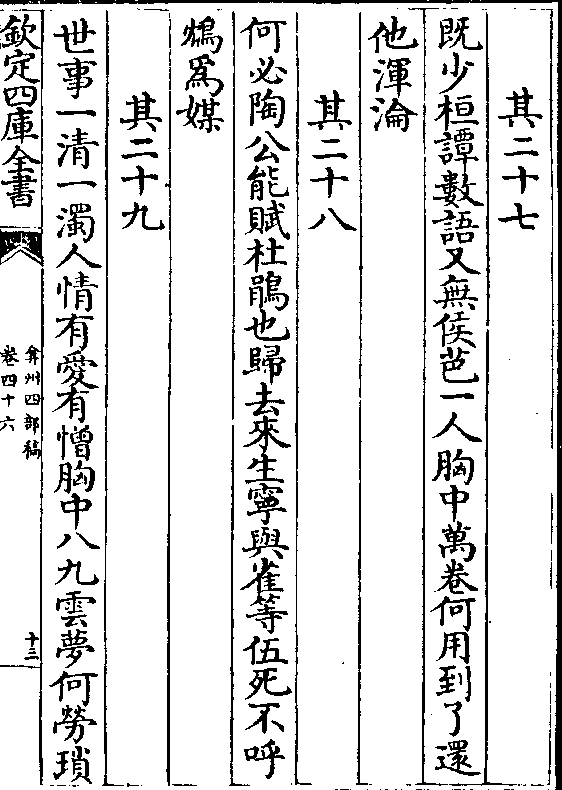 其二十七
既少桓譚數語又無侯芭一人胸中萬卷何用到了還
他渾淪
其二十八
何必陶公能賦杜鵑也歸去來生寧與雀等伍死不呼
鴆為媒
其二十九
世事一清一濁人情有愛有憎胸中八九雲夢何勞瑣
欽定四庫全書
弇州四部稿
卷四十六
十三